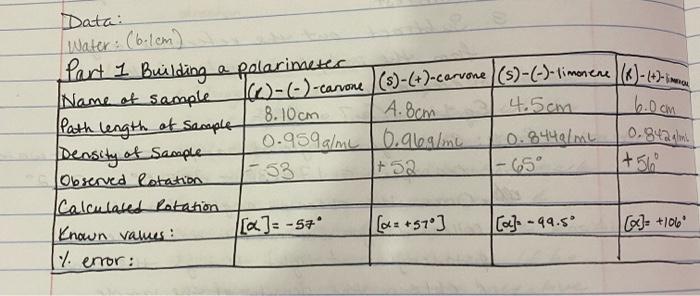 Data:
Water: (6.1cm)
Part 1 Building a polarimeter
Name of sample (R)-(-)-carvone (S)-(+)-carvone (S)-(-)-limonene (R)-(+)-limonene
Path length of Sample 8.10cm 4.8cm 4.5cm 6.0cm
Density of Sample 0.959g/mL 0.96g/mL 0.844g/mL 0.842g/mL
Observed Rotation -53 +52 -65° +56°
Calculated Rotation
Known values: [α]= -57° [α= +57°] [α]= -99.5° [α]= +106°
% error: